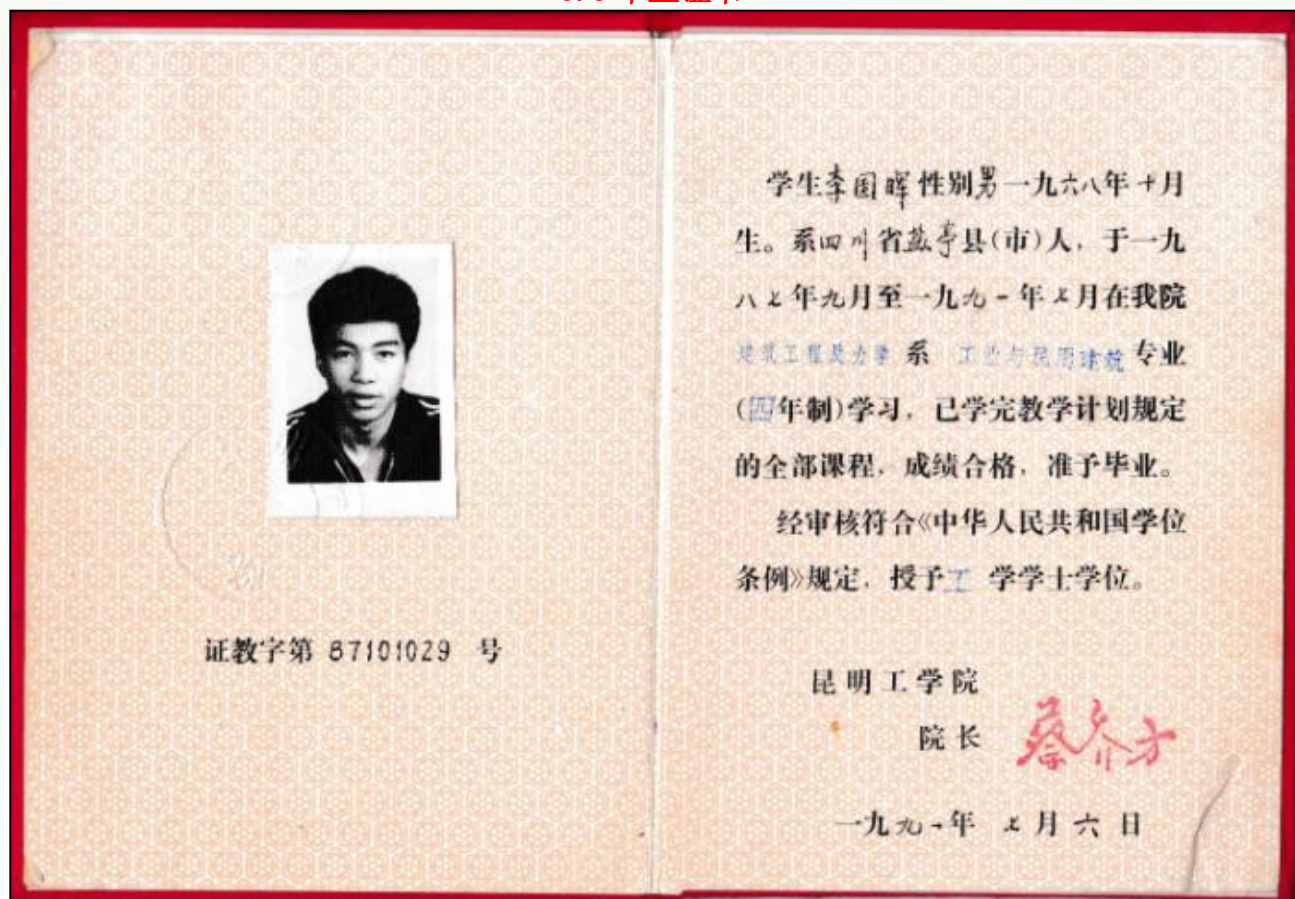 证教字第 87101029 号
学生李国晖性别男一九六八年十月
生。系四川省盐亭县(市)人，于一九
八七年九月至一九九一年七月在我院
建筑工程及力学 系 工业与民用建筑 专业
(四年制)学习，已学完教学计划规定
的全部课程，成绩合格，准予毕业。
经审核符合《中华人民共和国学位
条例》规定，授予工 学学士学位。
昆明工学院
院长 蔡乔方
一九九一年 七月六日